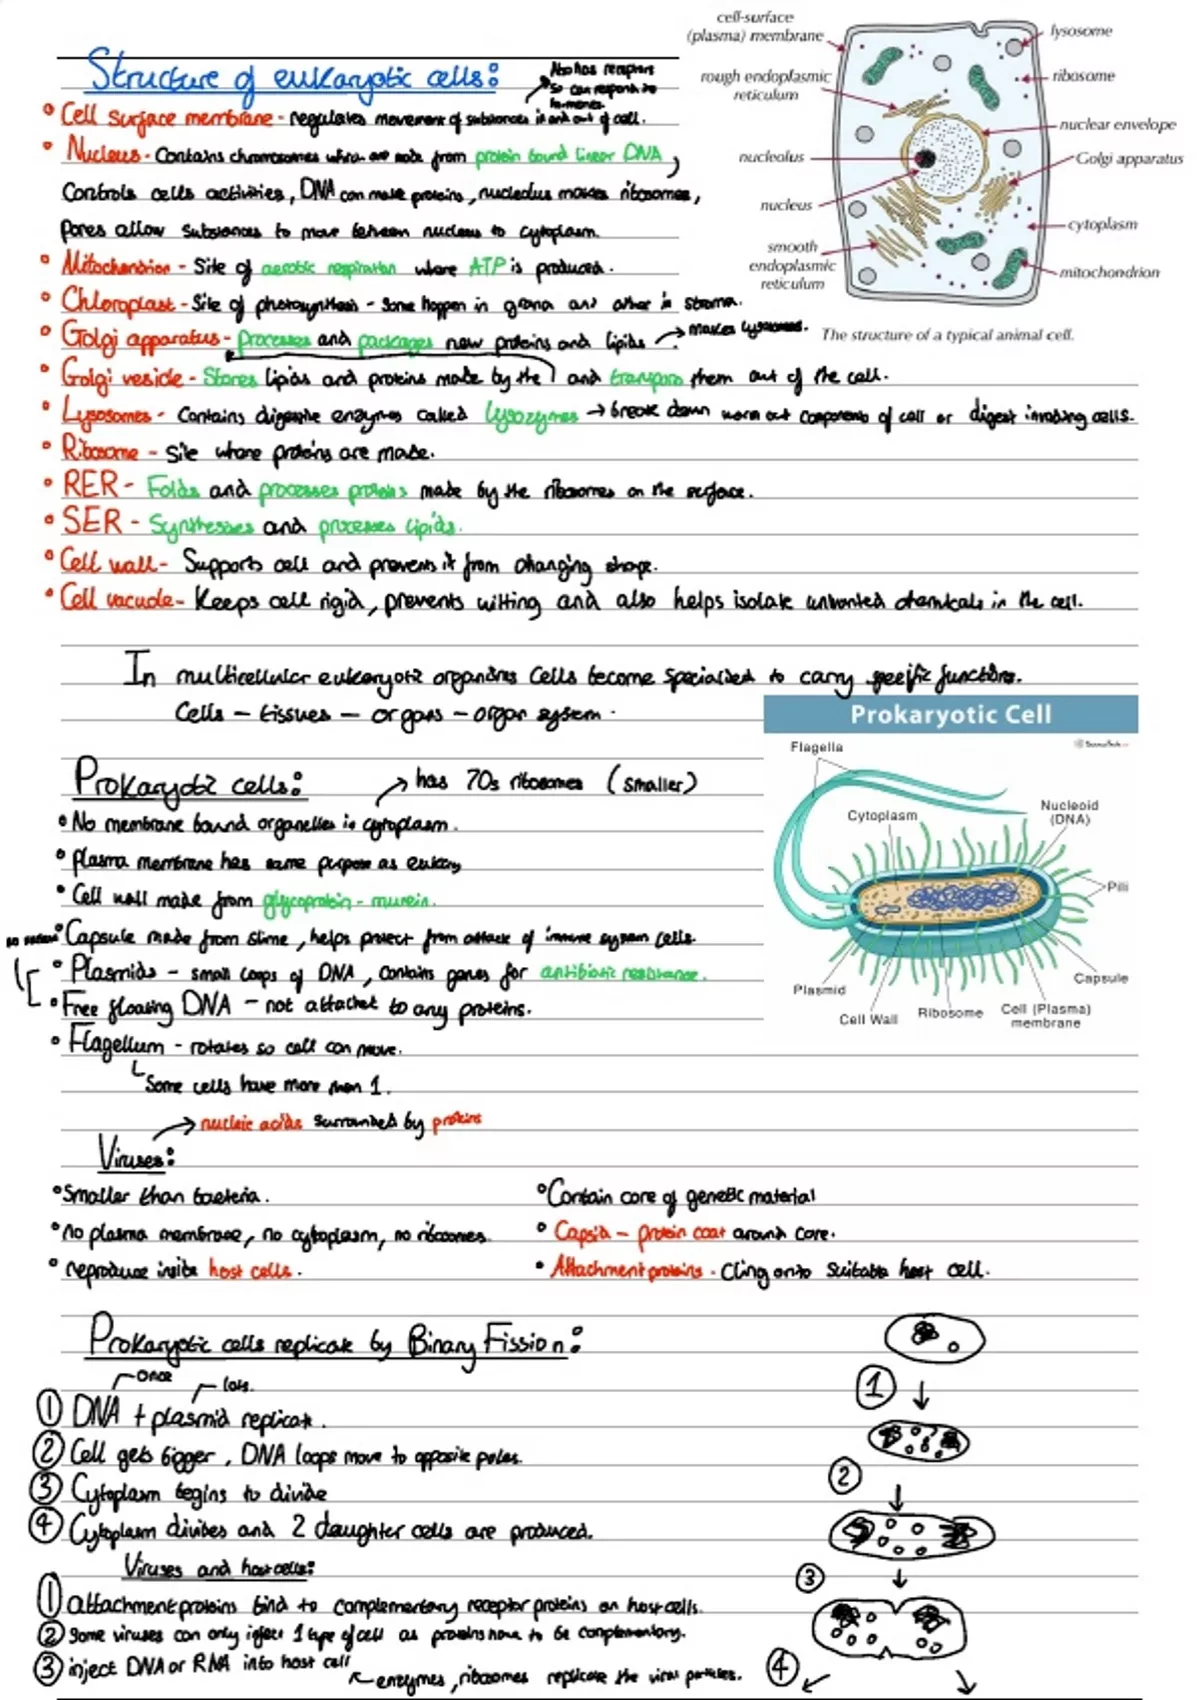 Structure of eukaryotic cells:
Also has receptors
so can respond to
hormones.
• Cell surface membrane - regulates movement of substances in and out of cell.
• Nucleus - Contains chromosomes which are made from protein bound linear DNA,
Controls cells activities, DNA can make proteins, nucleolus makes ribosomes,
Pores allow substances to move between nucleus to cytoplasm.
• Mitochondrion - Site of aerobic respiration where ATP is produced.
• Chloroplast - Site of photosynthesis - some happen in grana and other in stroma.
• Golgi apparatus - processes and packages new proteins and lipids → makes lysosomes.
• Golgi vesicle - Stores lipids and proteins made by the and transports them out of the cell.
• Lysosomes - Contains digestive enzymes called lysozymes → break down worn out components of cell or digest invading cells.
• Ribosome - Site where proteins are made.
• RER - Folds and processes proteins made by the ribosomes on the surface.
• SER - Synthesises and processes lipids.
• Cell wall - Supports cell and prevents it from changing shape.
• Cell vacuole - Keeps cell rigid, prevents wilting and also helps isolate unwanted chemicals in the cell.
cell-surface
(plasma) membrane
rough endoplasmic
reticulum
nucleolus
nucleus
smooth
endoplasmic
reticulum
lysosome
ribosome
nuclear envelope
Golgi apparatus
cytoplasm
mitochondrion
The structure of a typical animal cell.
In multicellular eukaryotic organisms cells become specialised to carry specific functions.
Cells - tissues - organs - organ system.
Prokaryotic cells:
→ has 70s ribosomes (smaller)
• No membrane bound organelles in cytoplasm.
• plasma membrane has same purpose as eukary
• Cell wall made from glycoprotein - murein.
• Capsule made from slime, helps protect from attack of immune system cells.
• Plasmids - small loops of DNA, contains genes for antibiotic resistance.
• Free floating DNA - not attached to any proteins.
• Flagellum - rotates so cell can move.
Some cells have more than 1.
Prokaryotic Cell
Flagella
Cytoplasm
Nucleoid
(DNA)
Pili
Capsule
Plasmid
Cell Wall
Ribosome
Cell (Plasma)
membrane
→ nucleic acids surrounded by proteins
Viruses:
• Smaller than bacteria.
• no plasma membrane, no cytoplasm, no ribosomes.
• reproduce inside host cells.
• Contain core of genetic material
• Capsid - protein coat around core.
• Attachment proteins - Cling onto suitable host cell.
Prokaryotic cells replicate by Binary Fission:
once
lots.
① DNA + plasmid replicate.
② Cell gets bigger, DNA loops move to opposite poles.
③ Cytoplasm begins to divide
④ Cytoplasm divides and 2 daughter cells are produced.
①
②
③
④
Viruses and host cells:
① attachment proteins bind to complementary receptor proteins on host cells.
② Some viruses can only infect 1 type of cell as proteins have to be complementary.
③ inject DNA or RNA into host cell
enzymes, ribosomes replicate the viral particles.